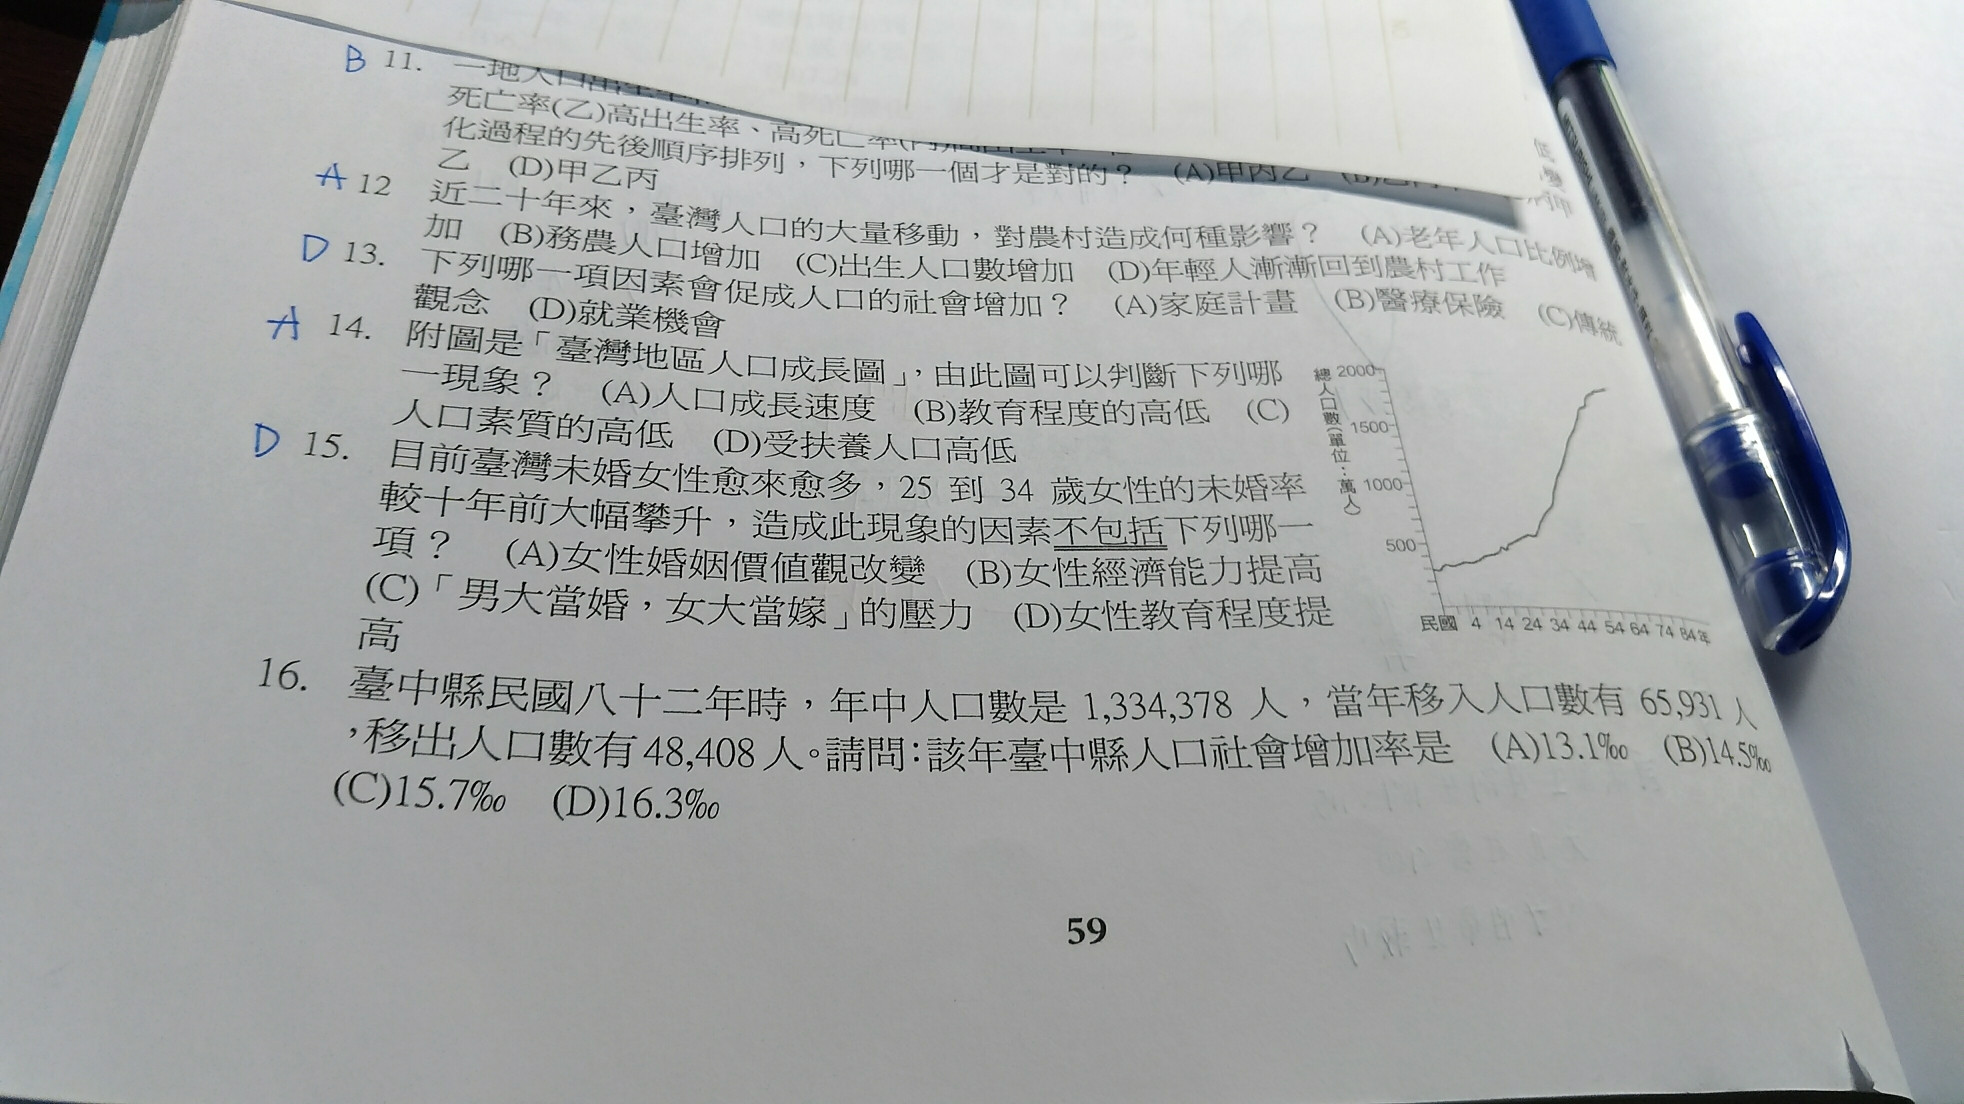 B 11. 一地人口出生率
死亡率(乙)高出生率、高死亡率(丙)
化過程的先後順序排列，下列哪一個才是對的？ (A)甲丙乙
乙 (D)甲乙丙
A 12 近二十年來，臺灣人口的大量移動，對農村造成何種影響？ (A)老年人口比例增
加 (B)務農人口增加 (C)出生人口數增加 (D)年輕人漸漸回到農村工作
D 13. 下列哪一項因素會促成人口的社會增加？ (A)家庭計畫 (B)醫療保險 (C)傳統
觀念 (D)就業機會
A 14. 附圖是「臺灣地區人口成長圖」，由此圖可以判斷下列哪
一現象？ (A)人口成長速度 (B)教育程度的高低 (C)
人口素質的高低 (D)受扶養人口高低
D 15. 目前臺灣未婚女性愈來愈多，25 到 34 歲女性的未婚率
較十年前大幅攀升，造成此現象的因素不包括下列哪一
項？ (A)女性婚姻價值觀改變 (B)女性經濟能力提高
(C)「男大當婚，女大當嫁」的壓力 (D)女性教育程度提
高
總人口數(單位：萬人)
2000
1500
1000
500
民國 4 14 24 34 44 54 64 74 84年
16. 臺中縣民國八十二年時，年中人口數是 1,334,378 人，當年移入人口數有 65,931 人
，移出人口數有 48,408 人。請問：該年臺中縣人口社會增加率是 (A)13.1‰ (B)14.5‰
(C)15.7‰ (D)16.3‰
59